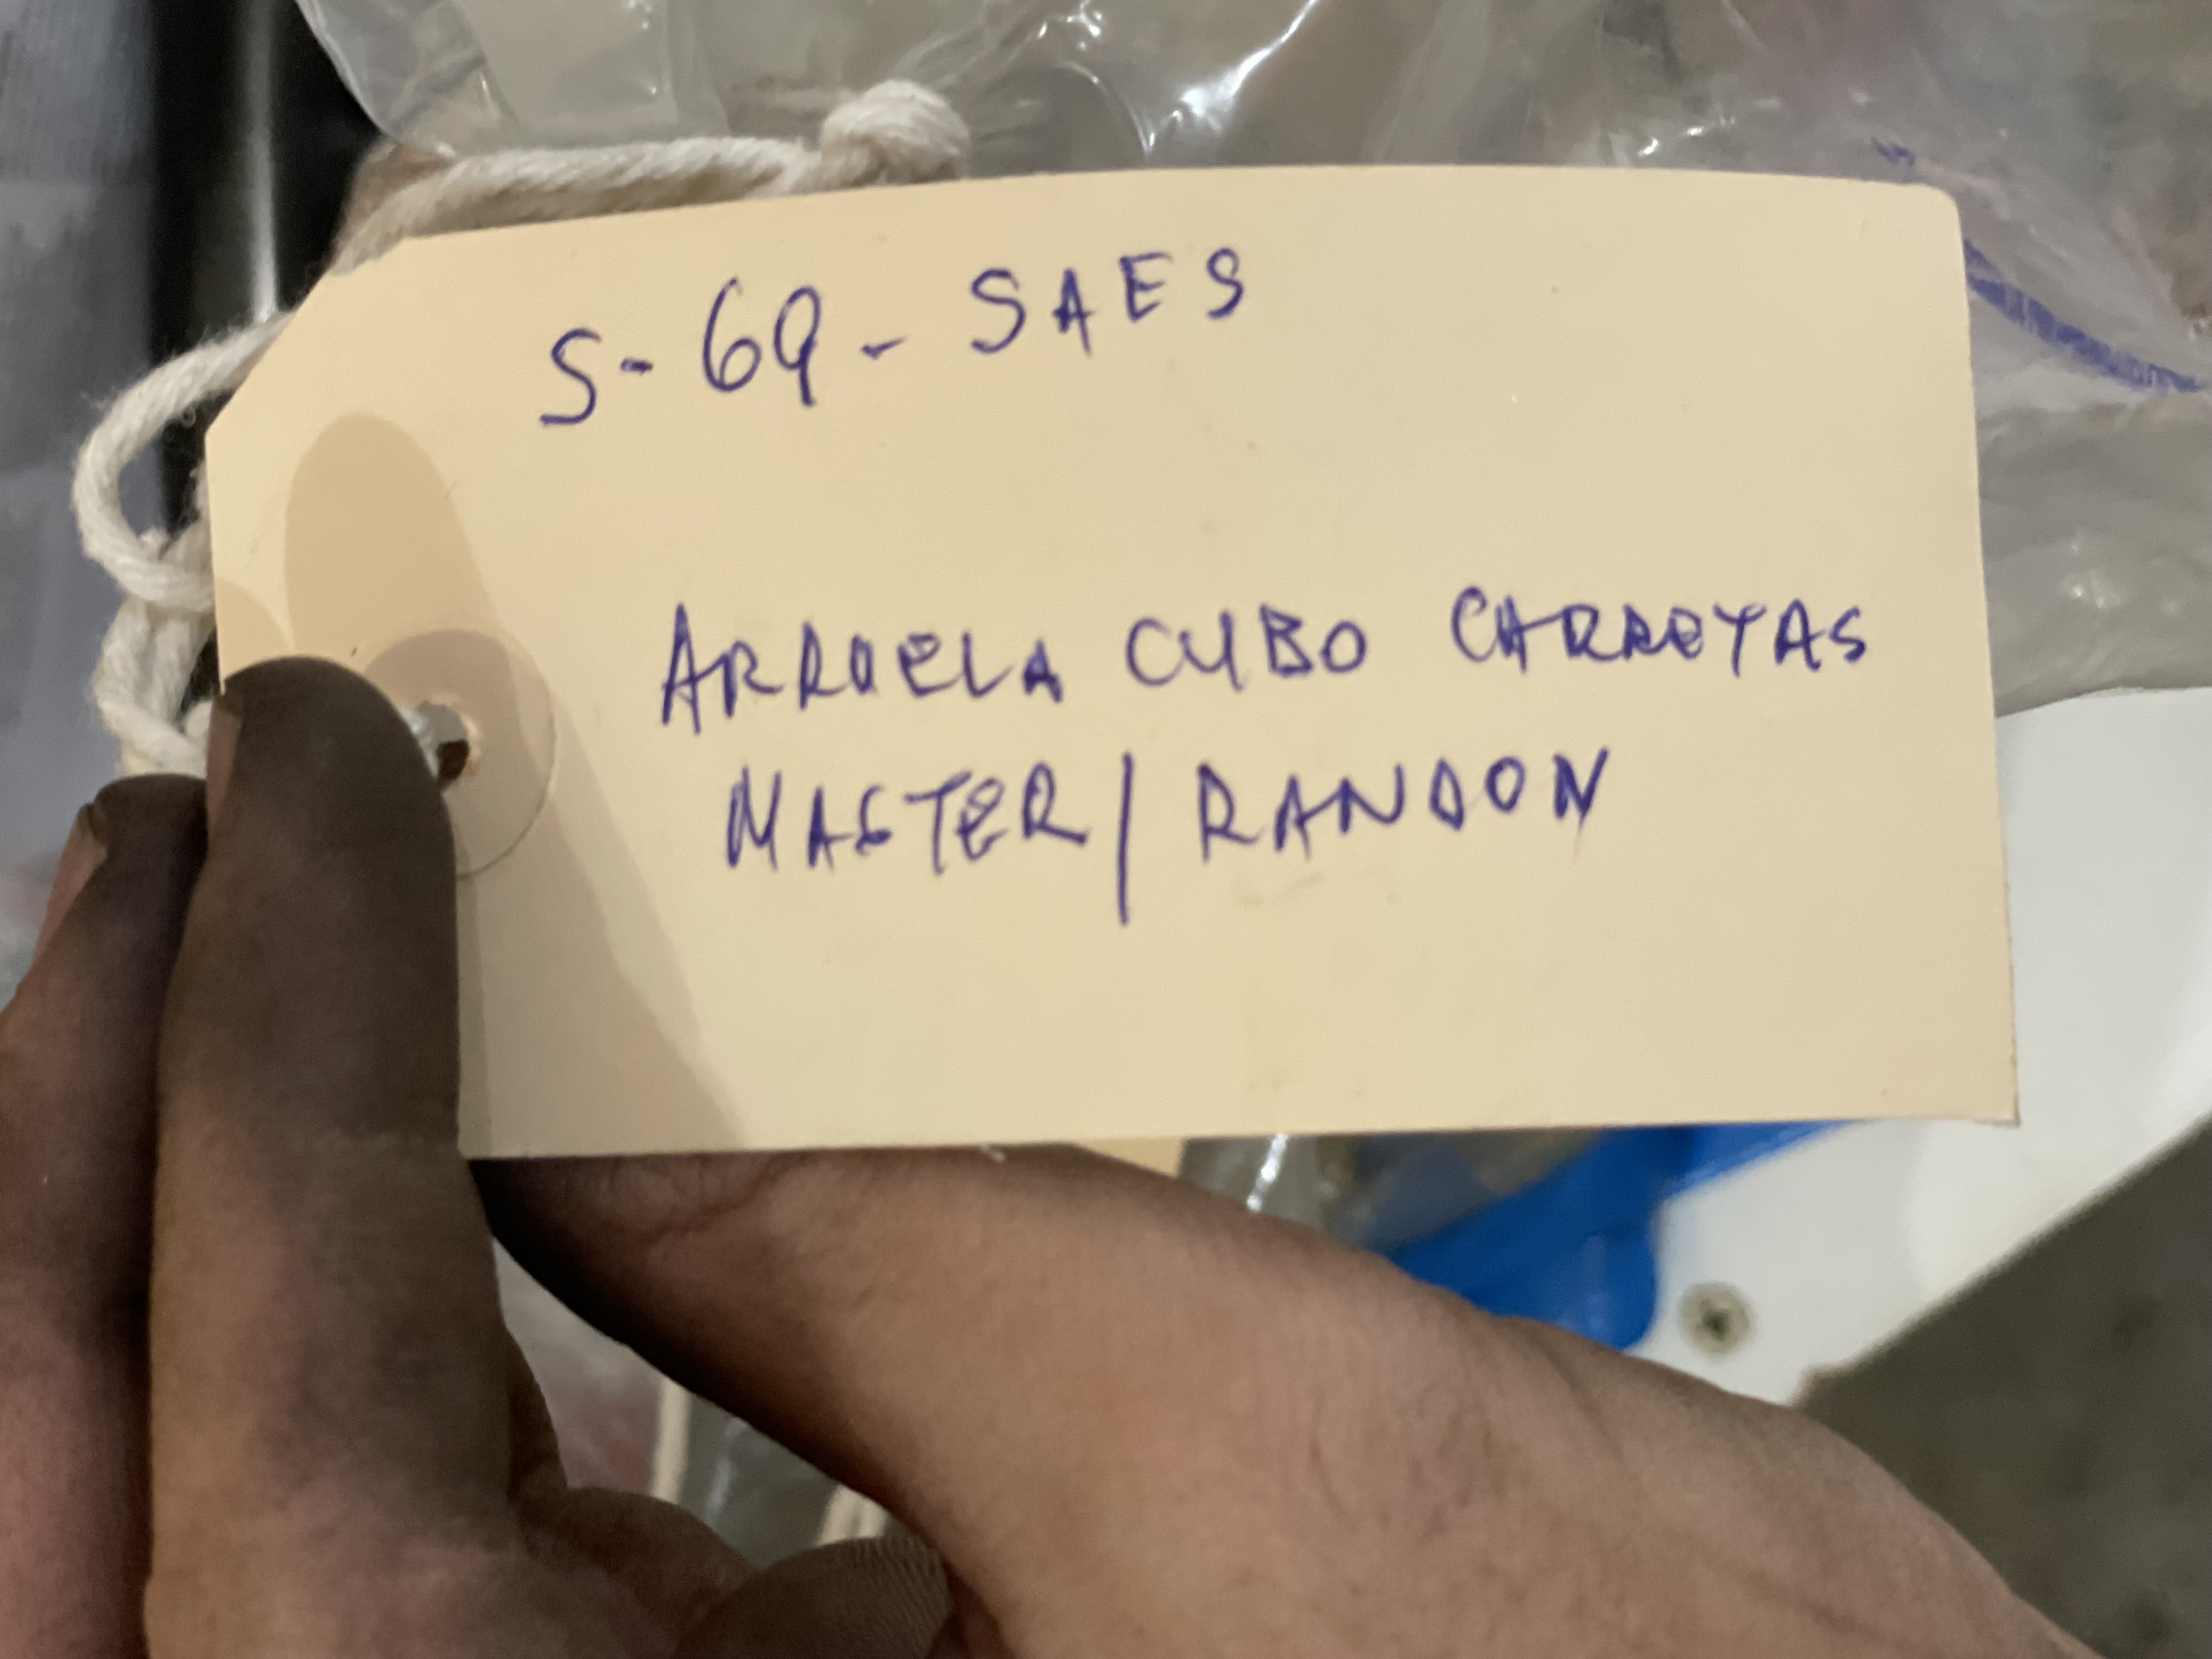 S-69-SAES
ARRUELA CUBO CARRETAS
MASTER/RANDON